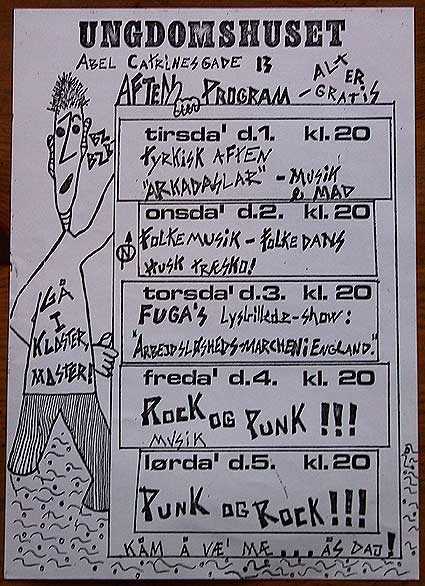 UNGDOMSHUSET
ABEL CATRINESGADE 13
AFTEN PROGRAM
ALT ER
- GRATIS
BZ
BZB
tirsda' d.1. kl. 20
TYRKISK AFTEN
"ARKADASLAR" - MUSIK
& MAD
onsda' d.2. kl. 20
FOLKEMUSIK - FOLKEDANS
HUSK TRÆSKO!
torsda' d.3. kl. 20
FUGA'S Lysbillede-show:
"ARBEJDSLØSHEDS-MARCHEN I ENGLAND."
freda' d.4. kl. 20
ROCK OG PUNK !!!
MUSIK
lørda' d.5. kl. 20
PUNK OG ROCK!!!
KÄM Å VÆ' MÆ... ÄS DAJ!
GÅ
I
KLOSTER,
MOSTER!